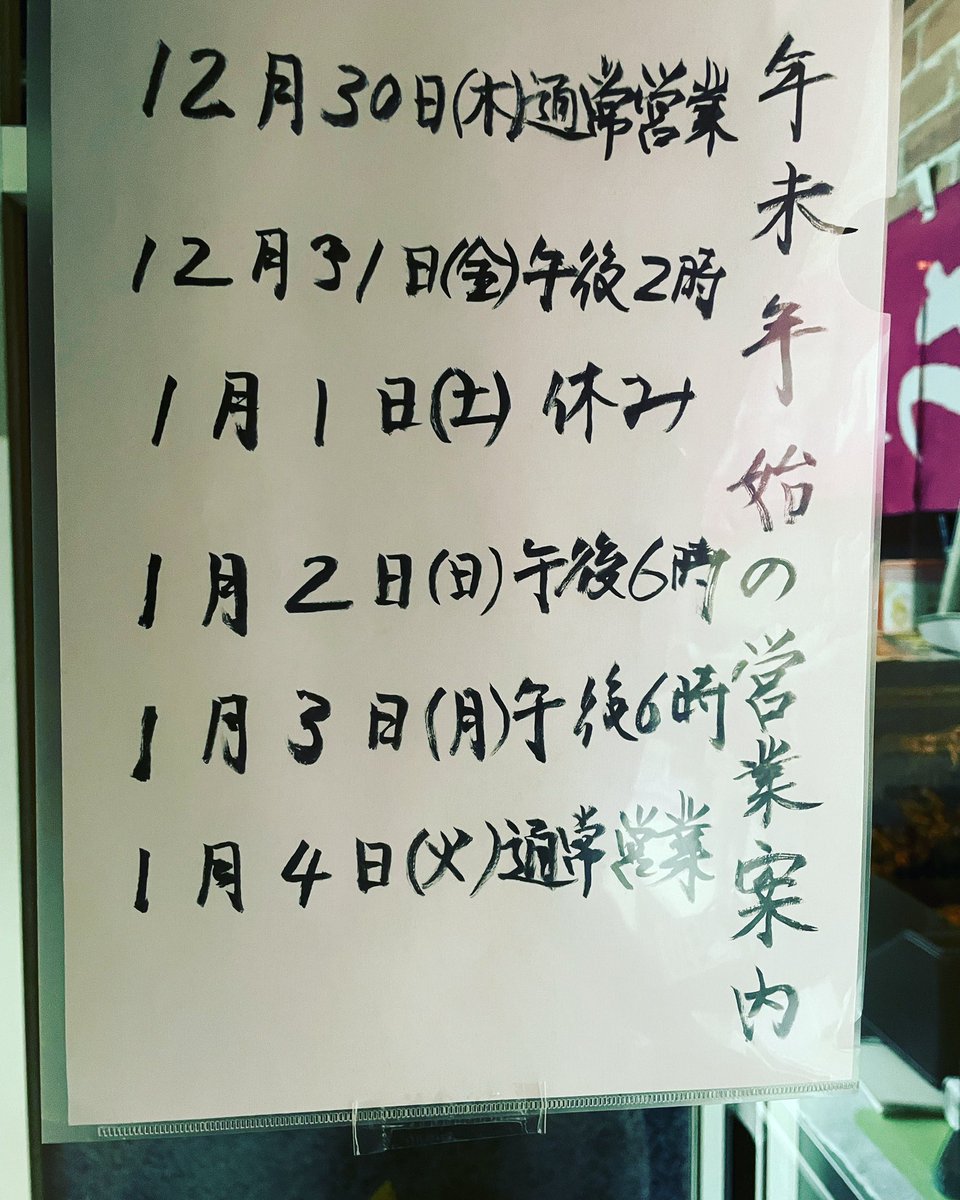 年末年始の営業案内
12月30日(木)通常営業
12月31日(金)午後2時
1月1日(土)休み
1月2日(日)午後6時
1月3日(月)午後6時
1月4日(火)通常営業